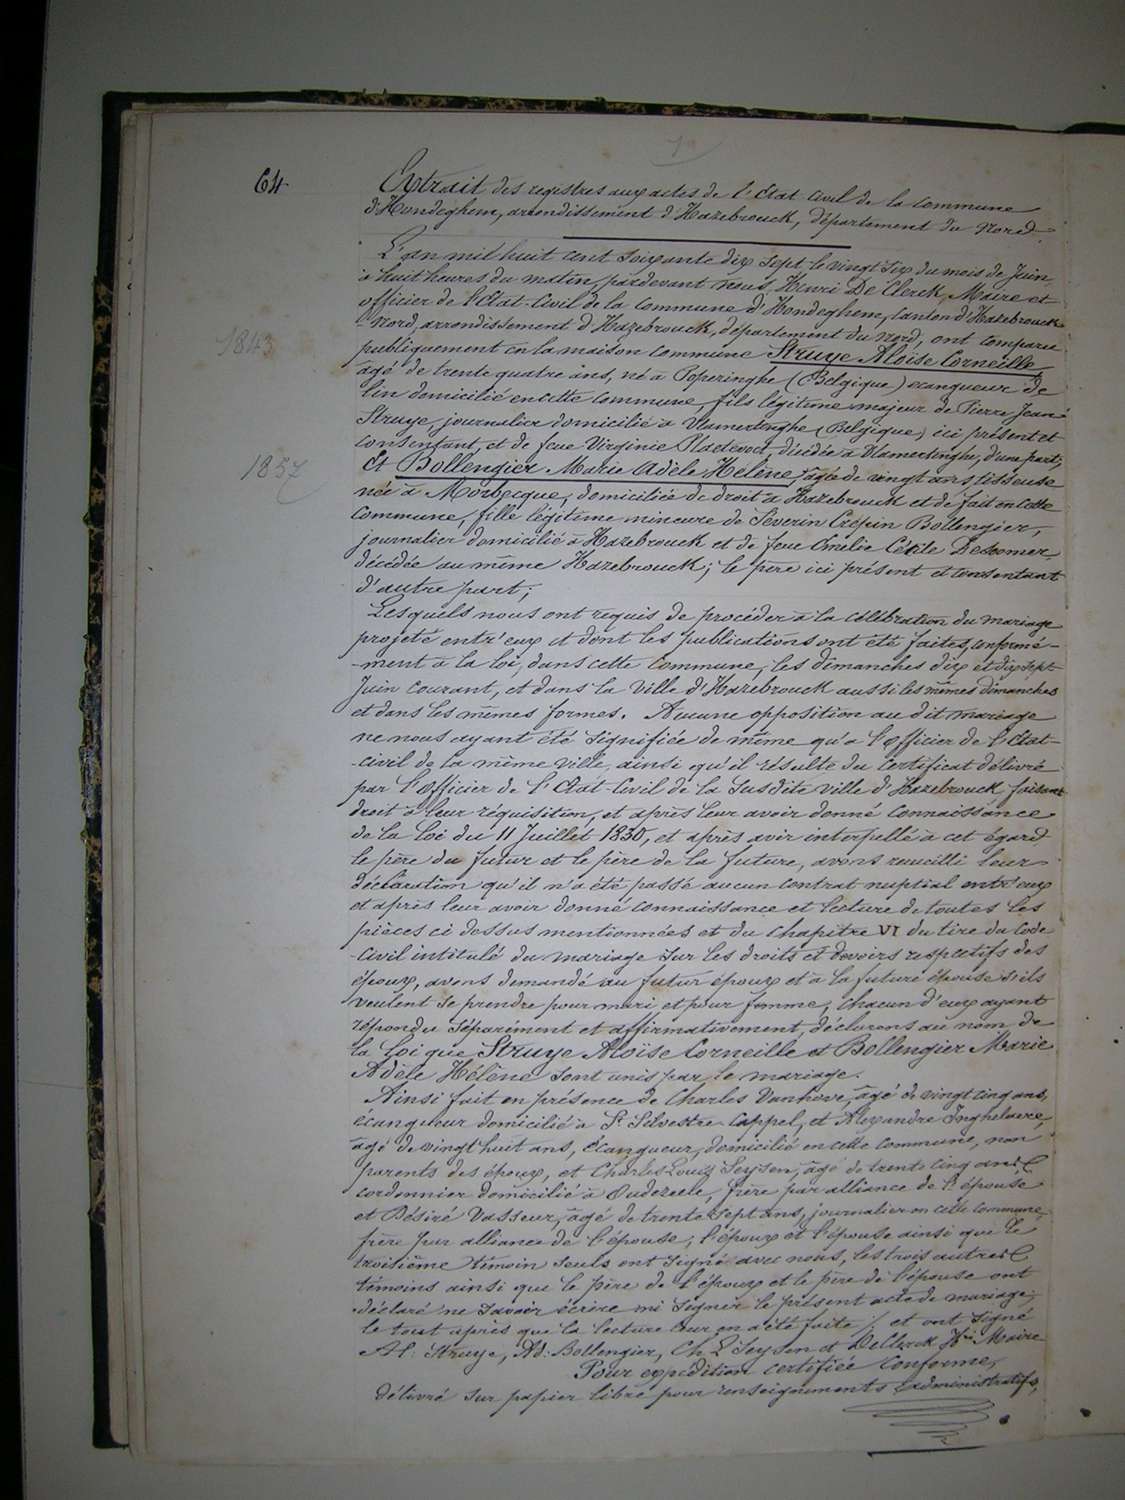 64
1843
1857
Extrait des registres aux actes de l'Etat Civil de la Commune
d'Hondeghem, arrondissement d'Hazebrouck, département du Nord.
L'an mil huit cent soixante dix sept le vingt six du mois de Juin
à huit heures du matin, pardevant nous, Henri De Clerck, Maire et
officier de l'Etat-Civil de la commune d'Hondeghem, Canton d'Hazebrouck
-Nord, arrondissement d'Hazebrouck, département du Nord, ont comparu
publiquement en la maison commune Struye Aloïse Corneille
agé de trente quatre ans, né à Poperinghe (Belgique) ecangueur de
lin domicilié en cette commune, fils légitime majeur de Pierre Jean
Struye, journalier domicilié à Vlamertinghe (Belgique) ici présent et
consentant, et de feue Virginie, décédée à Vlamertinghe, d'une part;
Et Bollengier Marie Adèle Hélène, agée de vingt ans tisseuse
née à Morbecque, domiciliée de droit à Hazebrouck et de fait en cette
commune, fille légitime mineure de Séverin Crépin Bollengier,
journalier domicilié à Hazebrouck et de feue Amélie Cécile
décédée au même Hazebrouck; le père ici présent et consentant
d'autre part;
Lesquels nous ont requis de procéder à la célébration du mariage
projeté entr'eux et dont les publications ont été faites, conformé-
-ment à la loi, dans cette commune, les dimanches dix et dix sept
Juin courant, et dans la ville d'Hazebrouck aussi les mêmes dimanches
et dans les mêmes formes. Aucune opposition au dit mariage
ne nous ayant été signifiée de même qu'à l'officier de l'Etat-
-civil de la même ville, ainsi qu'il résulte du certificat délivré
par l'officier de l'Etat-Civil de la susdite ville d'Hazebrouck faisant
droit à leur réquisition, et après leur avoir donné connaissance
de la loi du 11 Juillet 1850, et après avir interpellé à cet égard
le père du futur et le père de la future, avons recueilli leur
déclaration qu'il n'a été passé aucun contrat nuptial entr'eux
et après leur avoir donné connaissance et lecture de toutes les
pièces ci dessus mentionnées et du chapitre VI du tire du Code
-Civil intitulé du mariage sur les droits et devoirs respectifs des
époux, avons demandé au futur époux et à la future épouse s'ils
veulent se prendre pour mari et pour femme, chacun d'eux ayant
répondu séparément et affirmativement, déclarons au nom de
la loi que Struye Aloïse Corneille et Bollengier Marie
Adèle Hélène sont unis par le mariage.
Ainsi fait en présence de Charles Vanhove, âgé de vingt cinq ans,
écangueur domicilié à St Silvestre Cappel, et Alexandre Inghelaere,
âgé de vingt huit ans, écangueur, domicilié en cette commune, non
parents des époux, et Charles Louis Seysen, âgé de trente cinq ans
cordonnier domicilié à Oudezeele, frère par alliance de l'épouse
et Désiré Vasseur, âgé de trente sept ans, journalier en cette commune,
frère par alliance de l'épouse, l'époux et l'épouse ainsi que le
troisième témoin seuls ont signé avec nous, les trois autres
témoins ainsi que le père de l'époux et le père de l'épouse ont
déclaré ne savoir écrire ni signer le présent acte de mariage;
le tout après que la lecture leur en a été faite / et ont signé
Al: Struye, Ad: Bollengier, Ch. L Seysen et DeClerck Hri Maire
Pour expédition certifiée conforme,
délivré sur papier libre pour renseignements administratifs,